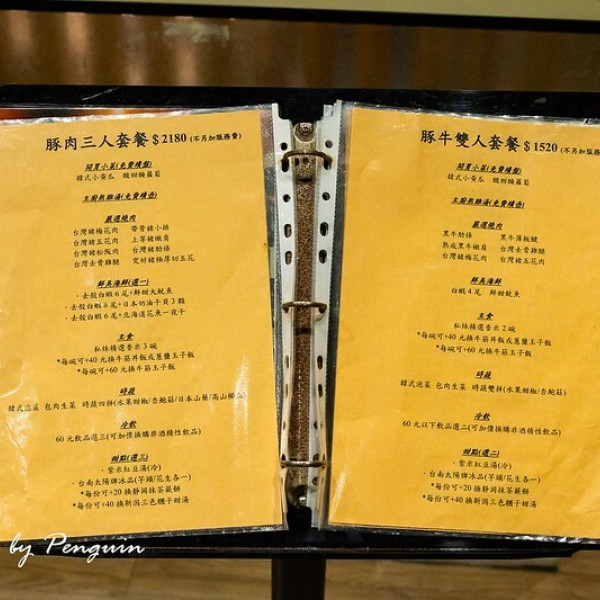 豚肉三人套餐 $2180 (不另加服務費)
開胃小菜(免費續盤)
韓式小黃瓜 酸甜脆蘿蔔
主廚熬雞湯(免費續壺)
嚴選燒肉
台灣豬梅花肉 帶骨豬小排
台灣豬五花肉 上等豬嫩肩
台灣豬松阪肉 台灣豬肋條
台灣去骨雞腿 究好豬極厚切五花
鮮美海鮮(選一)
·去殼白蝦6尾+鮮甜大魷魚
·去殼白蝦6尾+日本奶油干貝3顆
·去殼白蝦6尾+北海道花魚一夜干
主食
私伙精選香米3碗
*每碗可+40元換牛筋丼飯或蔥鹽玉子飯
*每碗可+60元換牛筋玉子飯
時蔬
韓式泡菜 包肉生菜 時蔬四拼(水果甜椒/杏鮑菇/日本山藥/高山櫛瓜)
冷飲
60元飲品選三(可加價換購非酒精性飲品)
甜點(選三)
·紫米紅豆湯(冷)
·台南太陽牌冰品(芋頭/花生各一)
*每份可+20換靜岡抹茶蕨餅
*每份可+40換新潟三色糰子甜湯
豚牛雙人套餐 $1520 (不另加服務
開胃小菜(免費續盤)
韓式小黃瓜 酸甜脆蘿蔔
主廚熬雞湯(免費續壺)
嚴選燒肉
黑牛肋條 黑牛薄板腱
熟成黑牛嫩肩 台灣去骨雞腿
台灣豬梅花肉 台灣豬五花肉
鮮美海鮮
白蝦4尾 鮮甜魷魚
主食
私伙精選香米2碗
*每碗可+40元換牛筋丼飯或蔥鹽玉子飯
*每碗可+60元換牛筋玉子飯
時蔬
韓式泡菜 包肉生菜 時蔬雙拼(水果甜椒/杏鮑菇)
冷飲
60元以下飲品選二(可加價換購非酒精性飲品)
甜點(選二)
·紫米紅豆湯(冷)
·台南太陽牌冰品(芋頭/花生各一)
*每份可+20換靜岡抹茶蕨餅
*每份可+40換新潟三色糰子甜湯
by Penguin